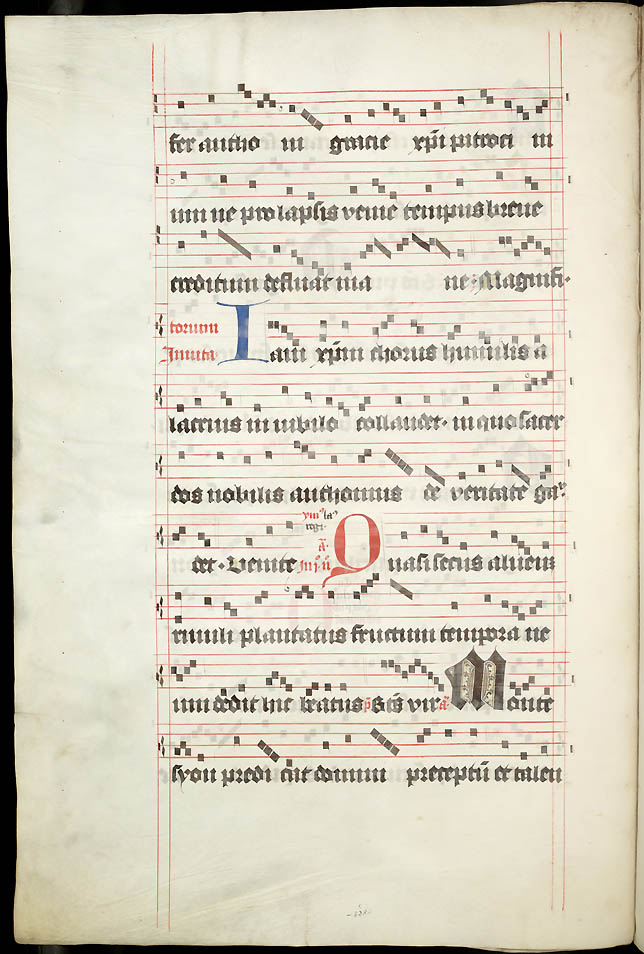 fer antho ni gracie xpi pitroci ni
nii ne pro lapsis veine tempus breue
erditum defluat ma ne. Magnifi.
torium
Inuita Iam xpm chorus humilis a
laterius in iubilo collaudet. in quo sacer
dos nobilis anthonius de veritate ga
det. Venite Quasi secus aluem
riuuli plantatus fructum tempora ne
uim dedit hic beatus ps Btus vir a Monte
syon predicat domini preceptu et talen